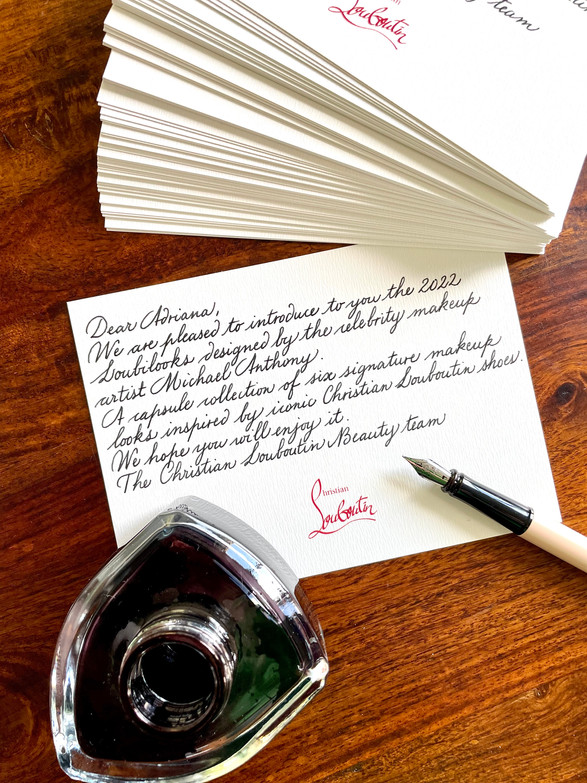 Christian
Louboutin
team
Dear Adriana,
We are pleased to introduce to you the 2022
Loubilooks designed by the celebrity makeup
artist Michael Anthony.
A capsule collection of six signature makeup
looks inspired by iconic Christian Louboutin shoes.
We hope you will enjoy it.
The Christian Louboutin Beauty team
Christian
Louboutin